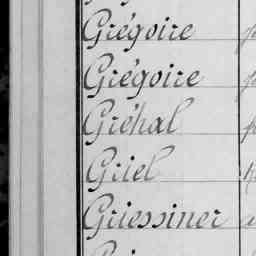 Grégoire
Grégoire
Gréhal
Griel
Griessiner